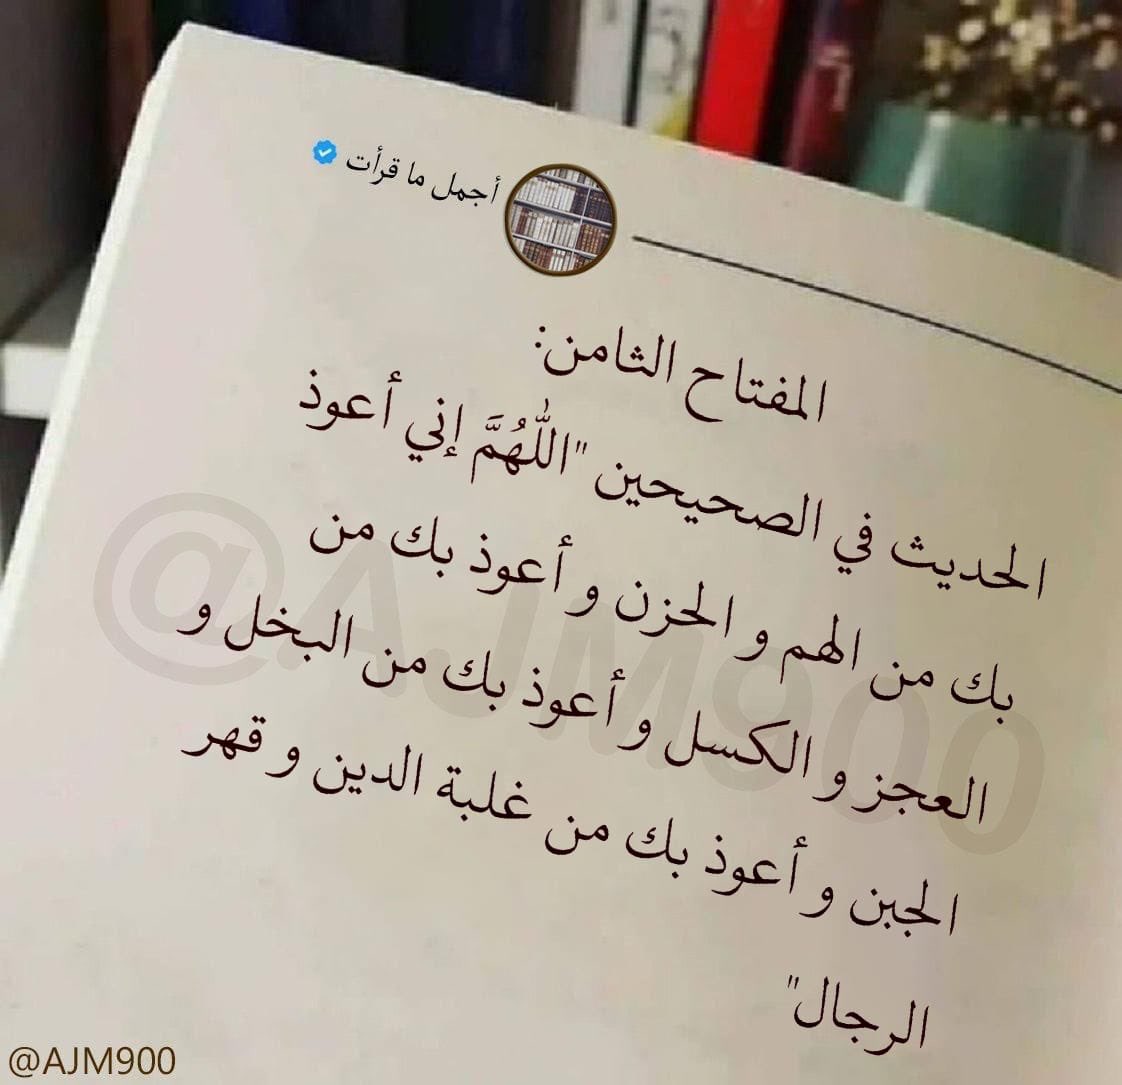 أجمل ما قرأت
المفتاح الثامن:
الحديث في الصحيحين "اللّٰهُمَّ إني أعوذ
بك من الهم و الحزن و أعوذ بك من
العجز و الكسل و أعوذ بك من البخل و
الجبن و أعوذ بك من غلبة الدين و قهر
الرجال"
@AJM900
@AJM900